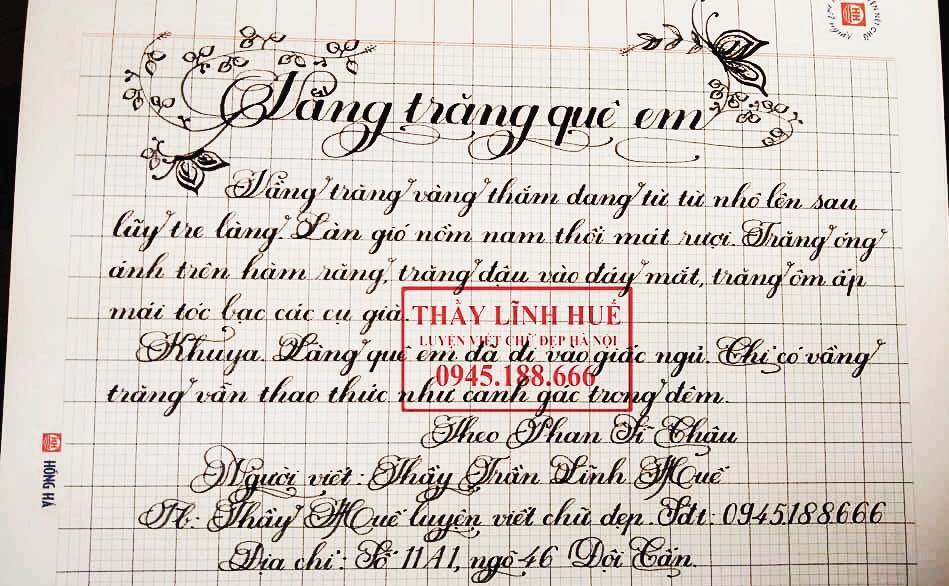 Vầng trăng quê em
Vầng trăng vàng thắm đang từ từ nhô lên sau
lũy tre làng. Làn gió nồm nam thổi mát rượi. Trăng óng
ánh trên hàm răng, trăng đậu vào đáy mắt, trăng ôm ấp
mái tóc bạc các cụ già.
THẦY LĨNH HUẾ
LUYỆN VIẾT CHỮ ĐẸP HÀ NỘI
0945.188.666
Khuya. Làng quê em đã đi vào giấc ngủ. Chỉ có vầng
trăng vẫn thao thức như canh gác trong đêm.
Theo Phan Sĩ Châu
Người viết: Thầy Trần Lĩnh Huế
Fb: Thầy Huế luyện viết chữ đẹp. Sđt: 0945188666
Địa chỉ: Số 11A1, ngõ 46 Đội Cấn.
HỒNG HÀ